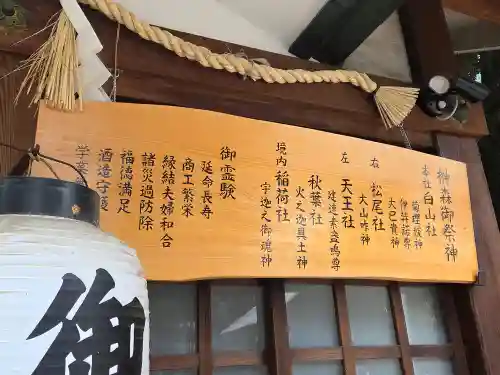 榊森御祭神
本社 白山社
菊理媛神
伊弉諾尊
大己貴神
右 松尾社
大山咋神
左 天王社
建速素盞嗚尊
秋葉社
火之迦具土神
境内 稲荷社
宇迦之御魂神
御霊験
延命長寿
商工繁栄
縁結夫婦和合
諸災過防除
福徳満足
酒造
御